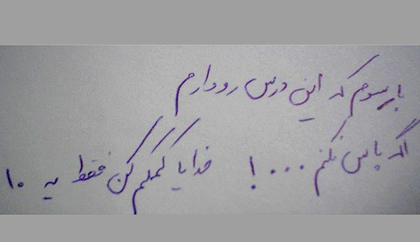 بار سوم که این درس رو دارم
اگه پاس نکنم ....! خدایا کمکم کن فقط یه ۱۰